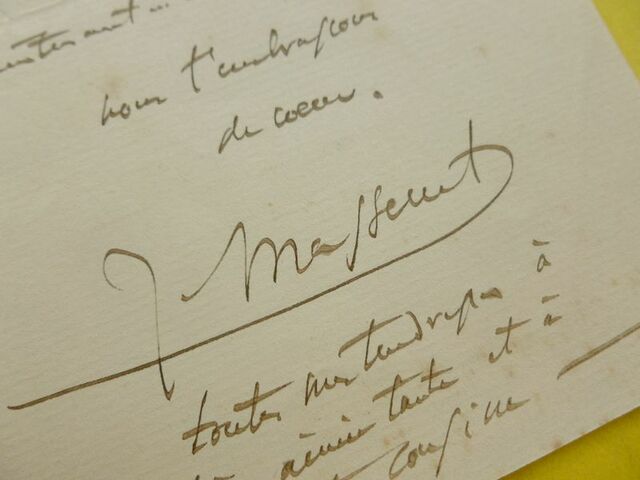 nous t'embrassons
de coeur.
J. Massenet
toutes mes tendresses à
aimée tante et à
cousine